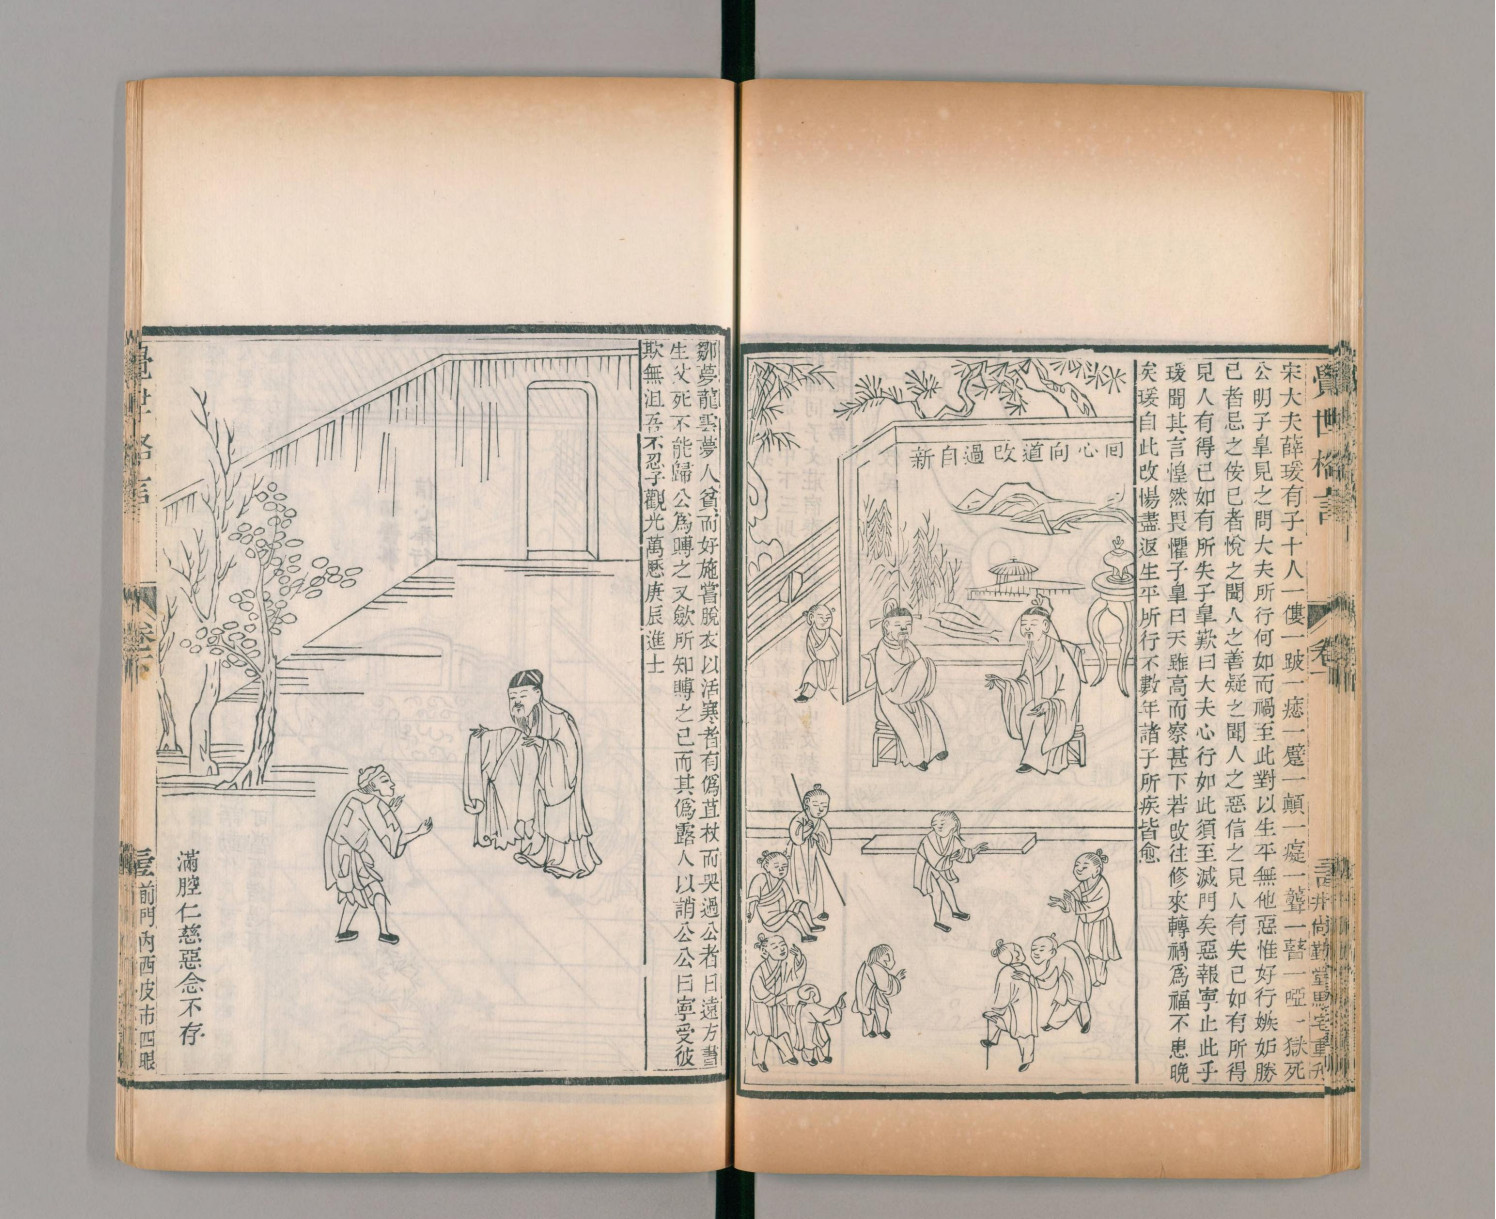 宋大夫薛瑗有子十人一僂一跛一痣一躄一顛一癡一聾一瞽一啞一獄死
公明子皐見之問大夫所行何如而禍至此對以生平無他惡惟好行嫉妬勝
已者忌之佞已者悅之聞人之善疑之聞人之惡信之見人有失已如有所得
見人有得已如有所失子皐歎曰大夫心行如此須至滅門矣惡報寧止此乎
瑗聞其言惶然畏懼子皐曰天雖高而察甚下若改往修來轉禍爲福不患晚
矣瑗自此改惕盡返生平所行不數年諸子所疾皆愈
回心向道改過自新
鄒夢龍雲夢人貧而好施嘗脫衣以活寒者有僞苴杖而哭過公者曰遠方書
生父死不能歸公爲賻之又斂所知賻之已而其僞露人以誚公公曰寧受彼
欺無沮吾不忍子觀光萬厯庚辰進士
滿腔仁慈惡念不存
覺世格言
卷一
前門內西皮市四眼